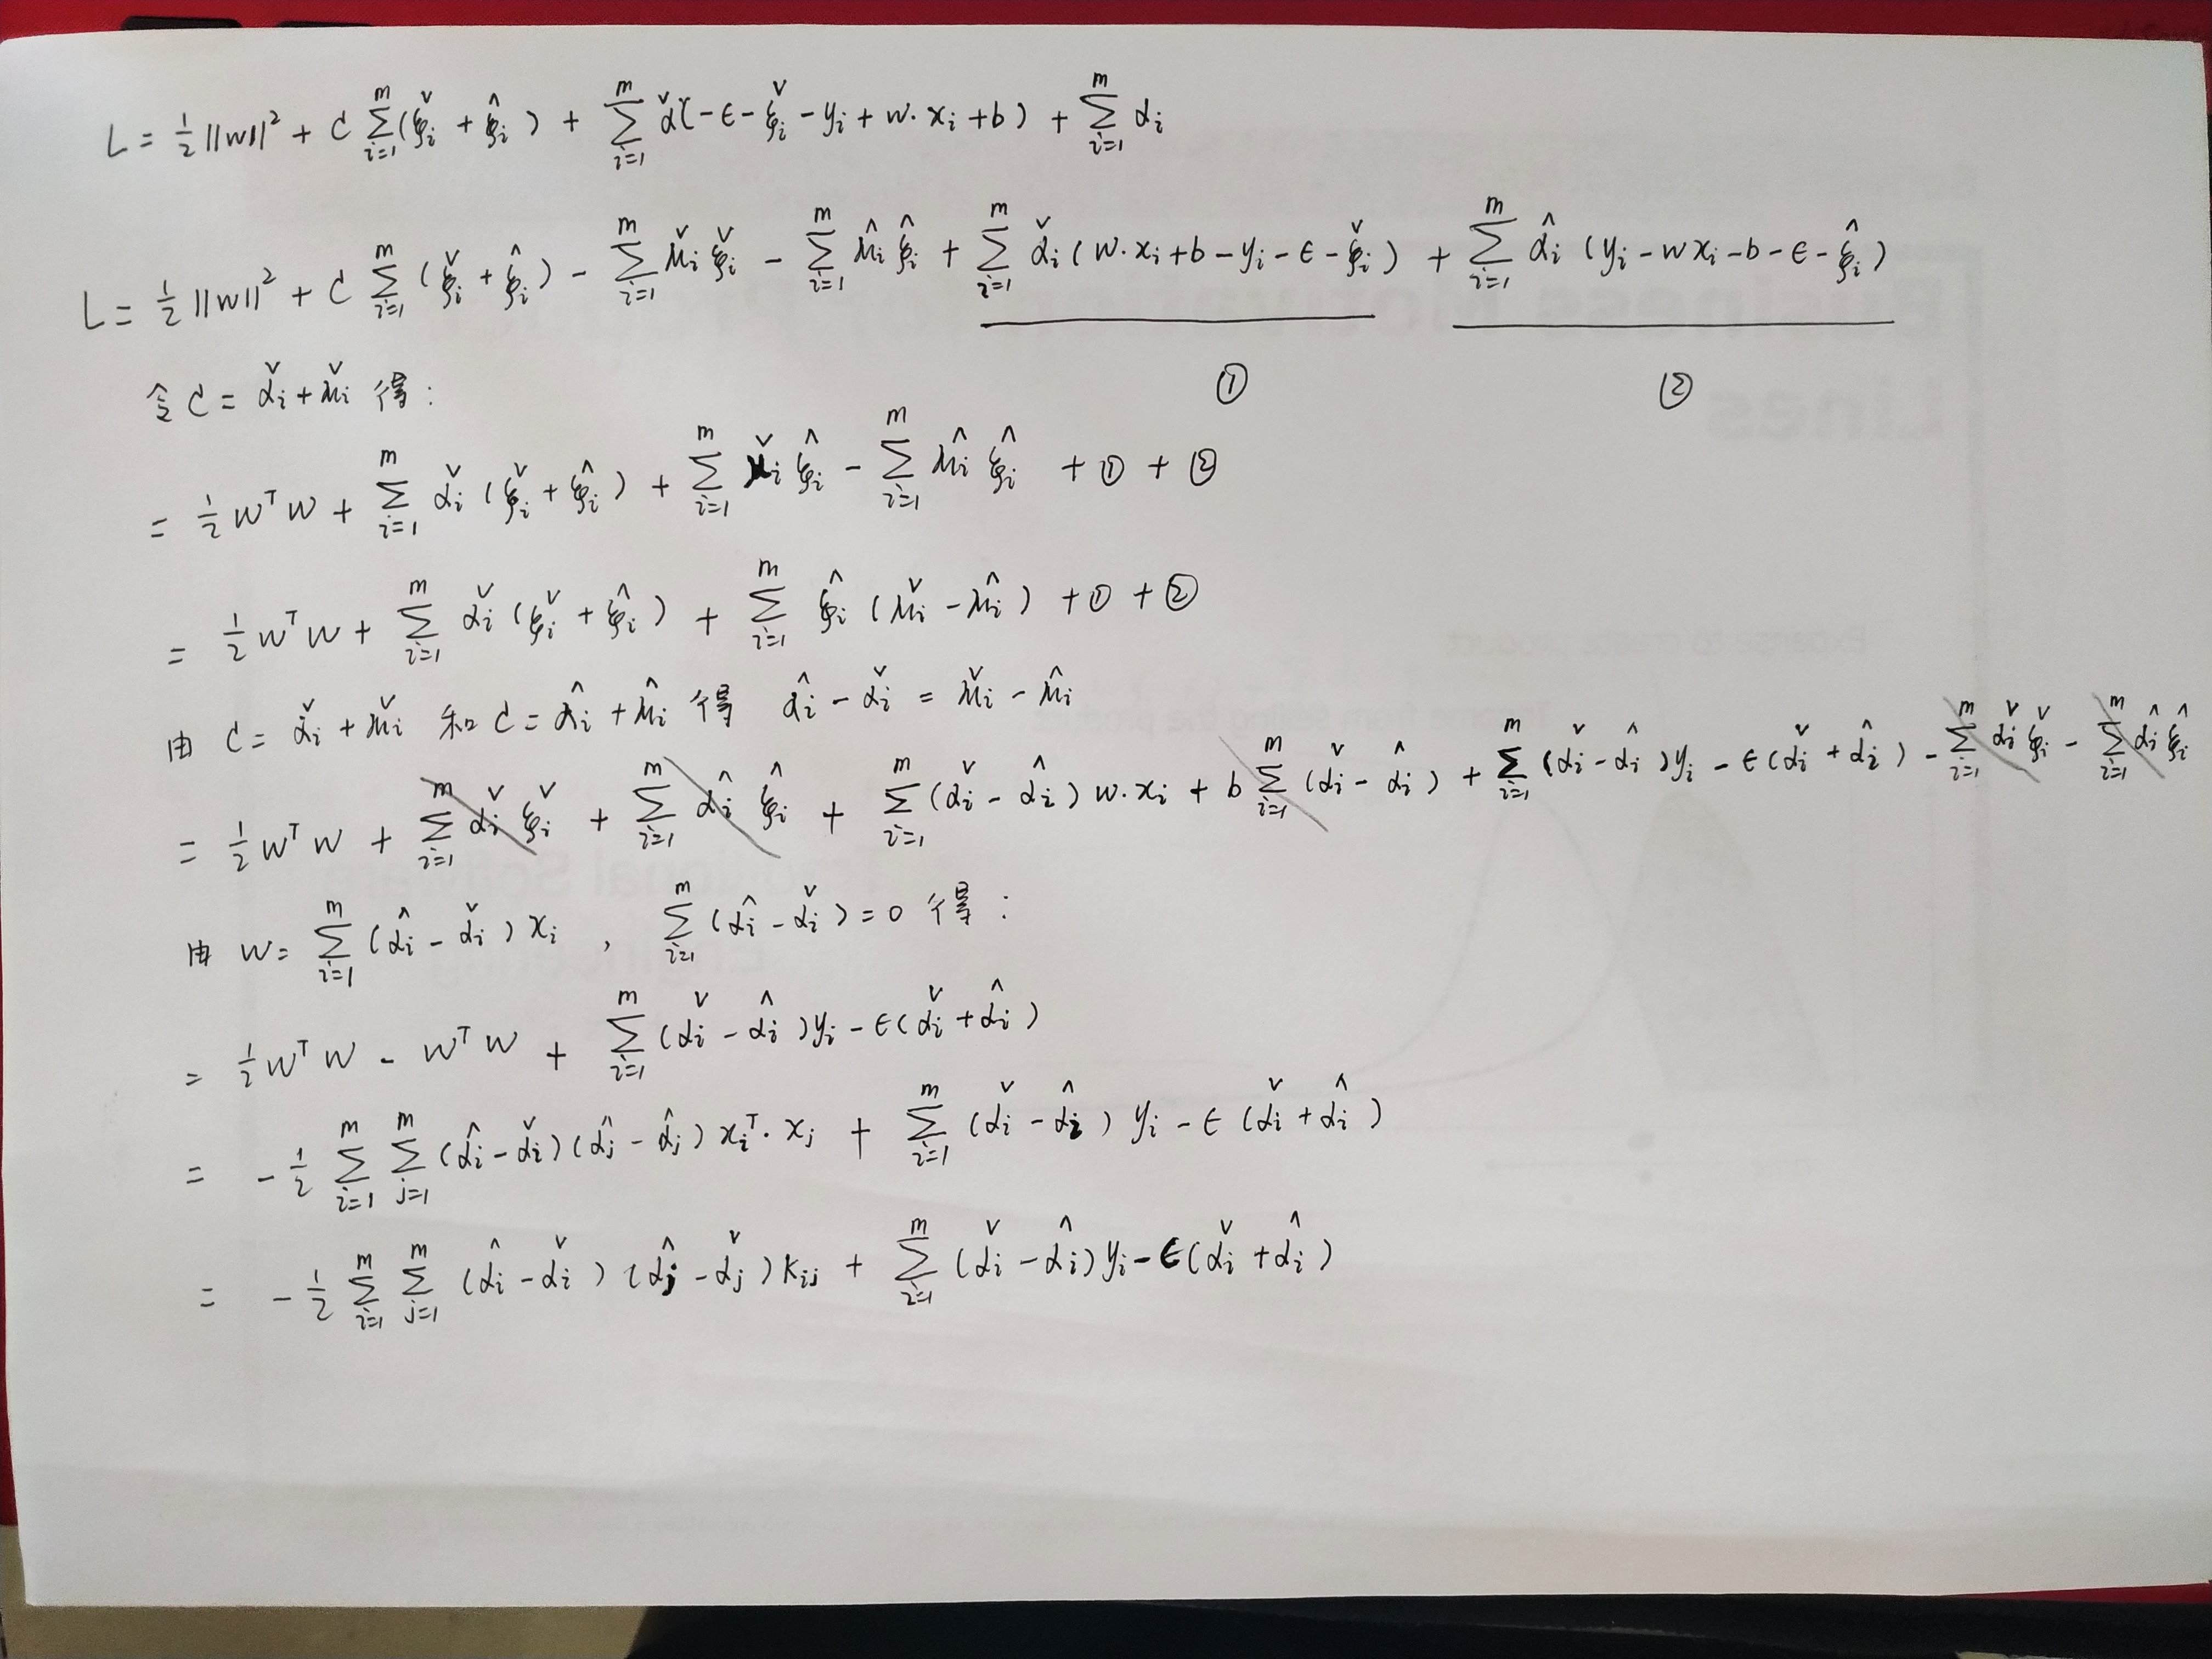 L = ½||w||² + C ∑_{i=1}^{m} (ξ̌ᵢ + ξ̂ᵢ) + ∑_{i=1}^{m} α̌(-ϵ - ξ̌ᵢ - yᵢ + w·xᵢ + b) + ∑_{i=1}^{m} αᵢ
L = ½||w||² + C ∑_{i=1}^{m} (ξ̌ᵢ + ξ̂ᵢ) - ∑_{i=1}^{m} μ̌ᵢ ξ̌ᵢ - ∑_{i=1}^{m} μ̂ᵢ ξ̂ᵢ + ∑_{i=1}^{m} α̌ᵢ (w·xᵢ + b - yᵢ - ϵ - ξ̌ᵢ) + ∑_{i=1}^{m} α̂ᵢ (yᵢ - wxᵢ - b - ϵ - ξ̂ᵢ)
① ②
令 C = α̌ᵢ + μ̌ᵢ 得:
= ½ wᵀw + ∑_{i=1}^{m} α̌ᵢ (ξ̌ᵢ + ξ̂ᵢ) + ∑_{i=1}^{m} μ̌ᵢ ξ̂ᵢ - ∑_{i=1}^{m} μ̂ᵢ ξ̂ᵢ + ① + ②
= ½ wᵀw + ∑_{i=1}^{m} α̌ᵢ (ξ̌ᵢ + ξ̂ᵢ) + ∑_{i=1}^{m} ξ̂ᵢ (μ̌ᵢ - μ̂ᵢ) + ① + ②
由 C = α̌ᵢ + μ̌ᵢ 和 C = α̂ᵢ + μ̂ᵢ 得 α̂ᵢ - α̌ᵢ = μ̌ᵢ - μ̂ᵢ
= ½ wᵀw + ∑_{i=1}^{m} α̌ᵢ ξ̌ᵢ + ∑_{i=1}^{m} α̂ᵢ ξ̂ᵢ + ∑_{i=1}^{m} (α̌ᵢ - α̂ᵢ) w·xᵢ + b ∑_{i=1}^{m} (α̌ᵢ - α̂ᵢ) + ∑_{i=1}^{m} (α̌ᵢ - α̂ᵢ) yᵢ - ϵ(α̌ᵢ + α̂ᵢ) - ∑_{i=1}^{m} α̌ᵢ ξ̌ᵢ - ∑_{i=1}^{m} α̂ᵢ ξ̂ᵢ
由 w = ∑_{i=1}^{m} (α̂ᵢ - α̌ᵢ) xᵢ , ∑_{i=1}^{m} (α̂ᵢ - α̌ᵢ) = 0 得:
= ½ wᵀw - wᵀw + ∑_{i=1}^{m} (α̌ᵢ - α̂ᵢ) yᵢ - ϵ(α̌ᵢ + α̂ᵢ)
= -½ ∑_{i=1}^{m} ∑_{j=1}^{m} (α̂ᵢ - α̌ᵢ)(α̂ⱼ - α̂ⱼ) xᵢᵀ·xⱼ + ∑_{i=1}^{m} (α̌ᵢ - α̂ᵢ) yᵢ - ϵ (α̌ᵢ + α̂ᵢ)
= -½ ∑_{i=1}^{m} ∑_{j=1}^{m} (α̂ᵢ - α̌ᵢ)(α̂ⱼ - α̌ⱼ) Kᵢⱼ + ∑_{i=1}^{m} (α̌ᵢ - α̂ᵢ) yᵢ - ϵ(α̌ᵢ + α̂ᵢ)